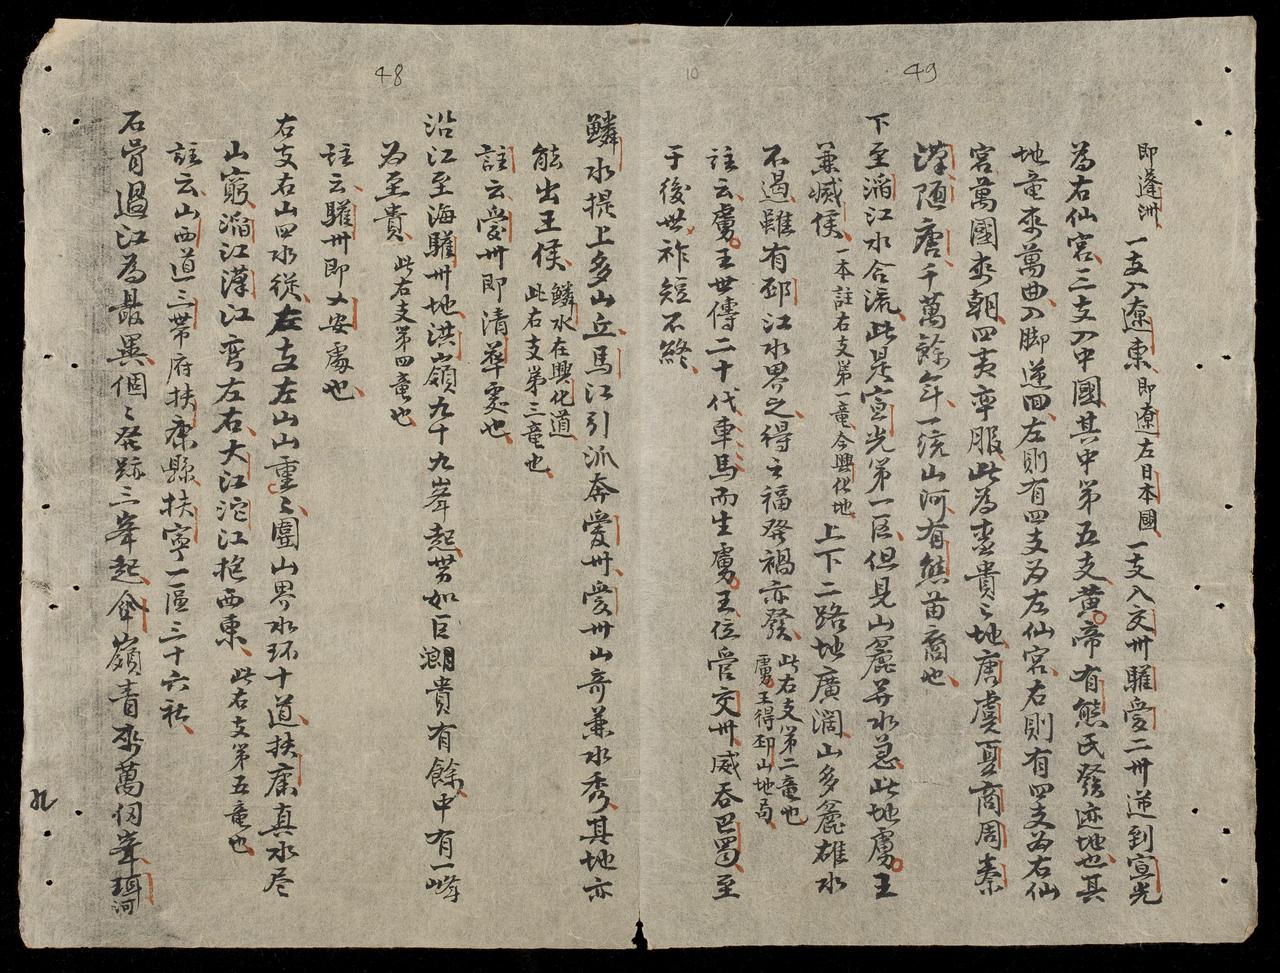 49
即蓬洲 一支入遼東 即遼左日本國 一支入交州驩愛二州逆到宣光
為右仙宮三支入中國其中第五支黄帝有熊氏發迹地也其
地竜來萬曲入脚逆回左則有四支为左仙宮右則有四支为右仙
宮萬國來朝四夷率服此為至貴之地唐虞夏商周秦
漢随唐千萬餘年一統山河有熊苗裔也
下至淄江水合流此是宣光第一臣但見山麄并水急此地虜王
兼㓕侯 一本註右支第一竜今興化地 上下二路地廣濶山多麄雄水
不遏雖有邳江水界之得之福發禍亦發 此右支第二竜也虜王得邳山地局
註云虜王世傳二十代車馬而生虜王位管交州威吞巴蜀至
于後世祚短不終
48
10
鱗水提上多山丘馬江引派奔愛州愛州山奇兼水秀其地亦
能出王侯 鱗水在興化道此右支第三竜也
註云愛州即清華處也
沿江至海驩州地洪嶺九十九峯起勢如巨潮貴有餘中有一峰
为至貴 此右支第四竜也
註云驩州即乂安處也
右支右山四水從左支左山山重之圍山界水环十道扶康真水尽
山窮淄江漢江弯左右大江沱江抱西東 此右支第五竜也
註云山西道三帶府扶康縣扶寧一區三十六社
石骨過江為最異個々發跡三峯起傘嶺青來萬仭峯珥河
九